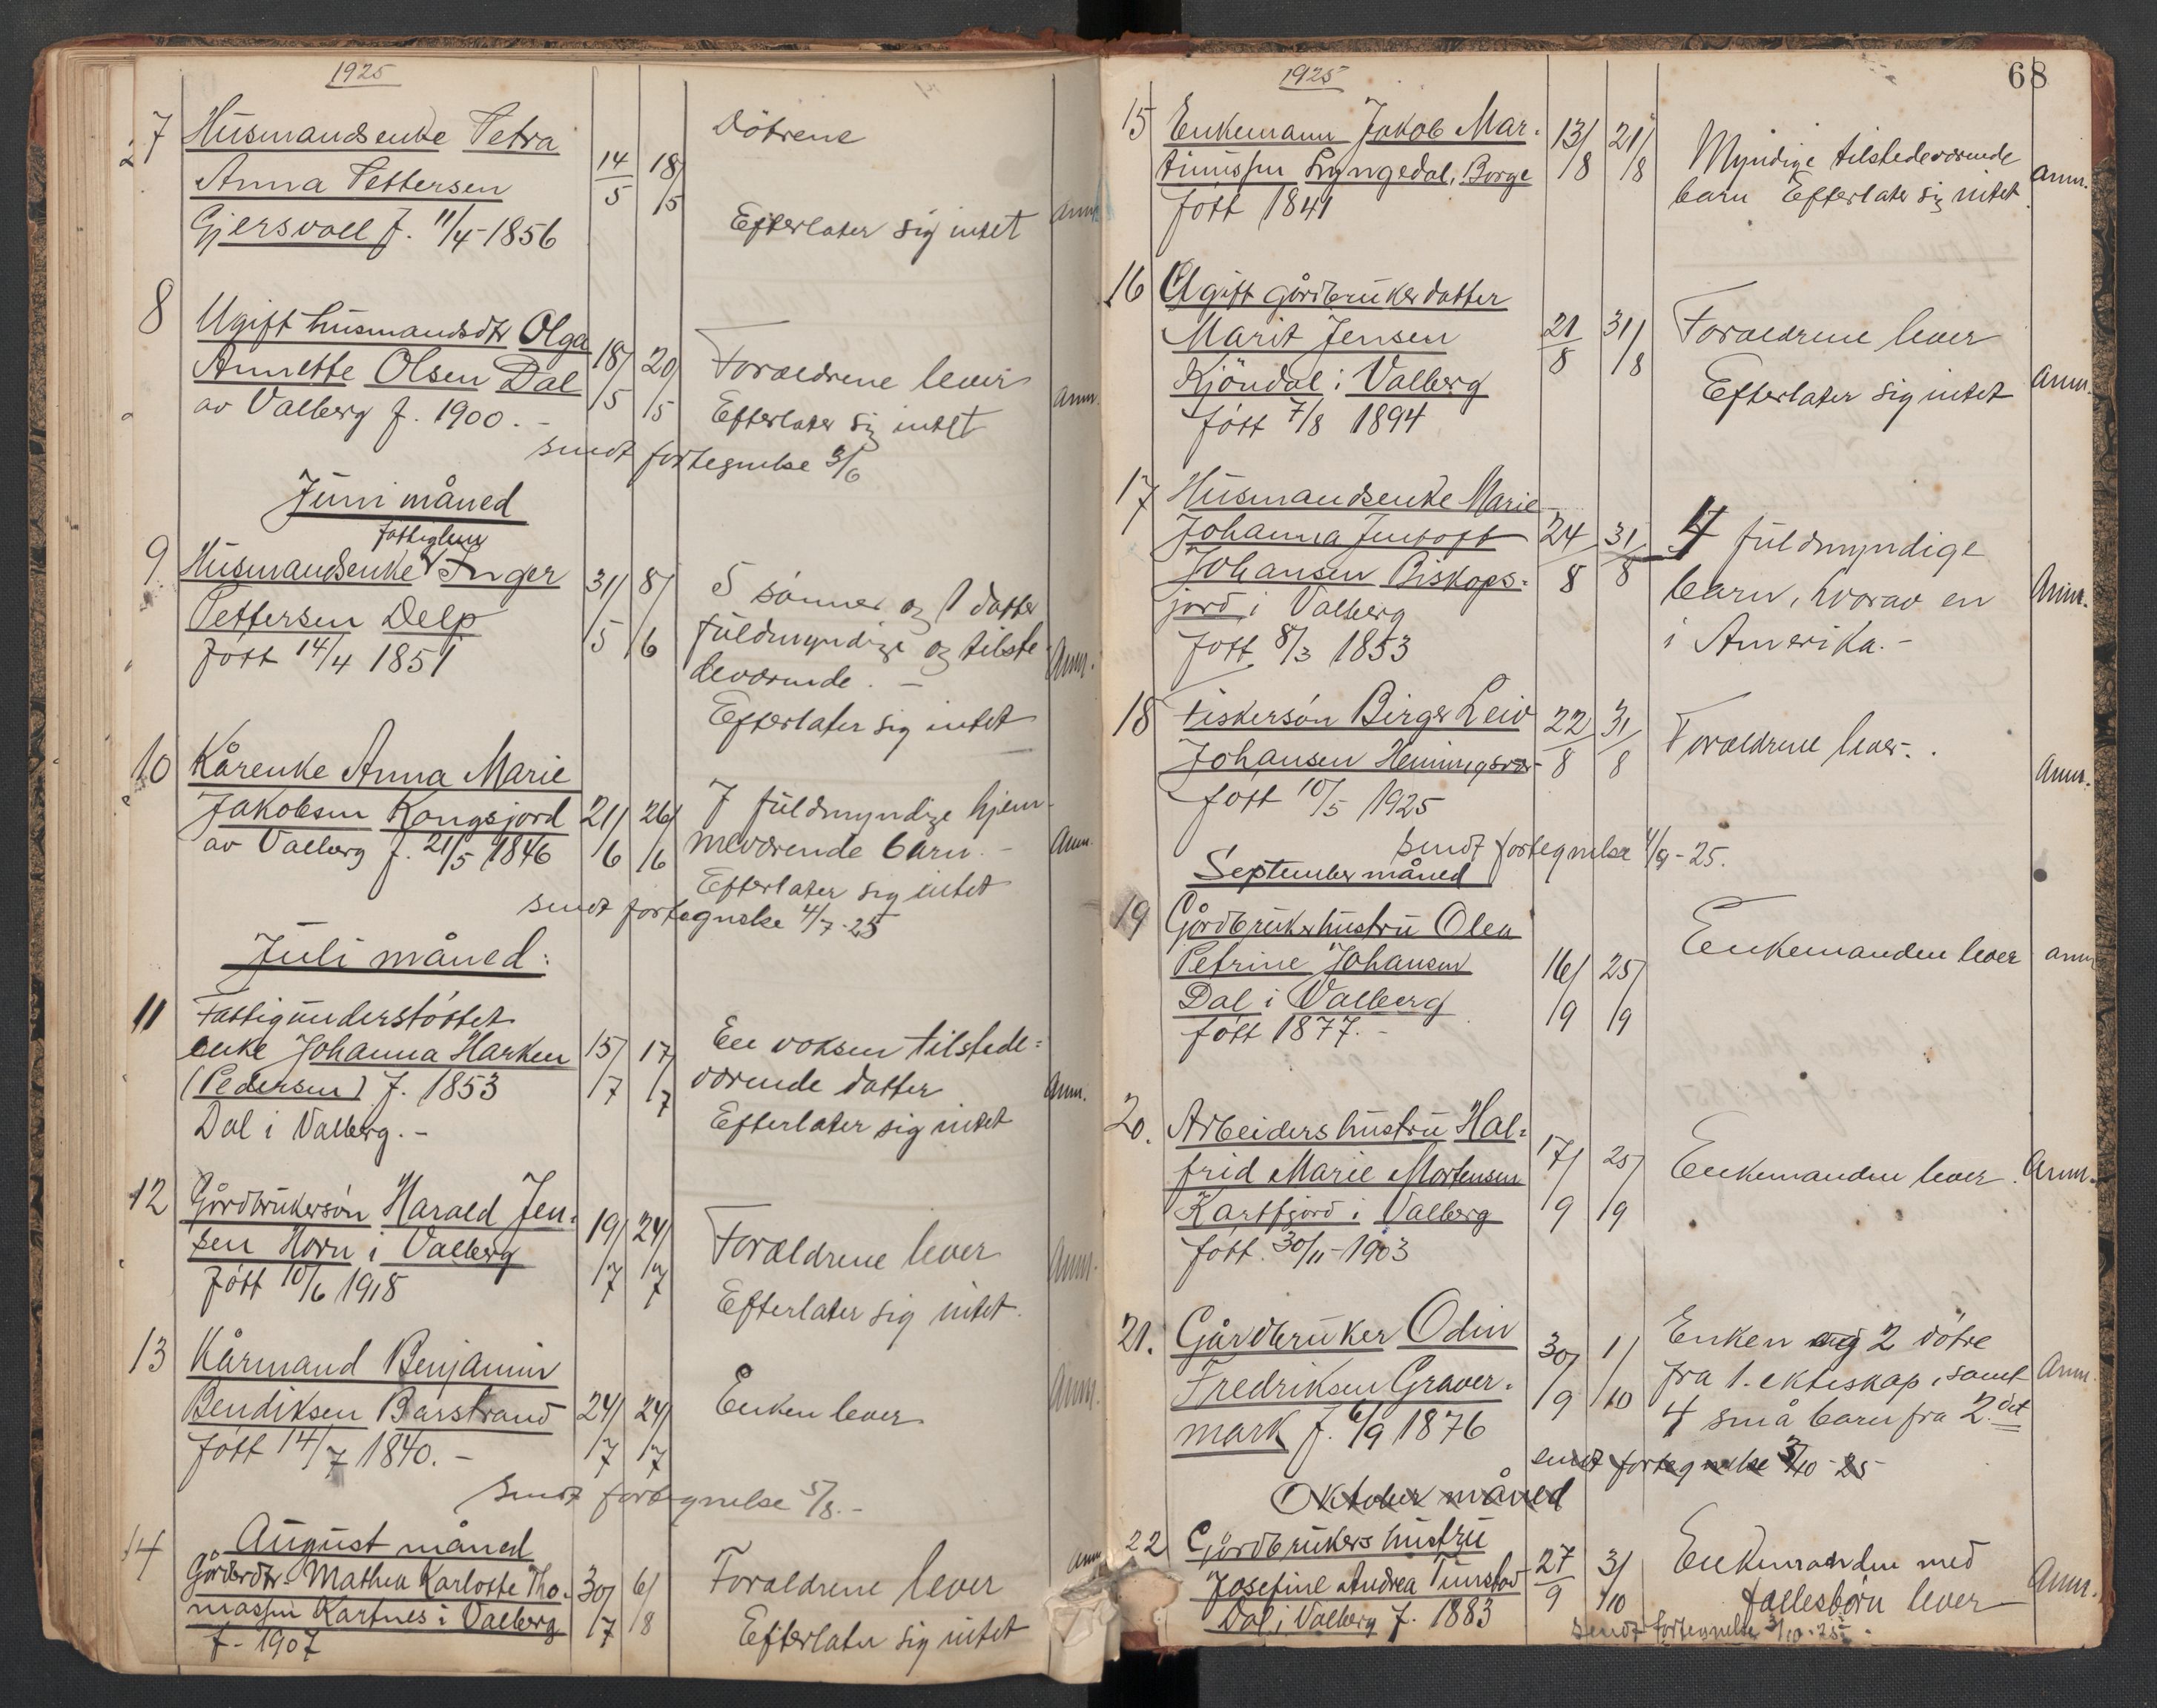 1925
7 Husmandsenke Petra
Anna Pettersen 14/5 18/5 Døtrene
Gjersvoll f. 11/4-1856 Efterlater sig intet Anm.
8 Ugift husmandsdtr Olga
Annette Olsen Dal 18/5 20/5 Forældrene lever
av Valberg f. 1900. - Efterlater sig intet Anm.
Sendt fortegnelse 3/6
Juni måned
fattiglem
9 Husmandsenke Inger 31/5 8/6 5 sønner og 1 datter
Pettersen Delp fuldmyndige og tilste
født 14/4 1851 deværende. - Anm.
Efterlater sig intet
10 Kårenke Anna Marie
Jakobsen Kongsjord 21/6 26/6 7 fuldmyndige hjem-
av Valberg f. 21/5 1846 meværende barn. - Anm.
Efterlater sig intet
Sendt fortegnelse 4/7-25
Juli måned:
11 Fattigunderstøttet
enke Johanna Harken 15/7 17/7 En voksen tilstede=
(Pedersen) f. 1853 værende datter Anm.
Dal i Valberg. - Efterlater sig intet
12 Gårdbrukersøn Harald Jen=
sen Horn i Valberg 19/7 24/7 Forældrene lever Anm.
født 10/6 1918 Efterlater sig intet.
13 Kårmand Benjamin
Bendiksen Barstrand 24/7 24/7 Enken lever Anm.
født 14/7 1840. -
Sendt fortegnelse 5/8. -
August måned
14 Gårdbrdtr. Mathea Karlotte Tho- 30/7 6/8 Forældrene lever Anm.
massen Kartnes i Valberg
f - 1907 Efterlater sig intet
1925 68
15 Enkemann Jakob Mar- 13/8 21/8 Myndige tilstedeværende Anm.
tinussen Lyngedal, Borge barn Efterlater sig intet.
født 1841
16 Ugift gårdbrukerdatter
Marit Jensen 21/8 31/8 Forældrene lever
Kjøndal i Valberg Efterlater sig intet Anm.
født 7/8 1894
17 Husmandsenke Marie
Johanna Jentoft 24/8 31/8 4 fuldmyndige
Johansen Biskops= barn, hvorav en Anm.
jord i Valberg i Amerika. -
født 8/3 1853
18 Fiskersøn Birger Leiv 22/8 31/8 Forældrene lever.
Johansen Henningsvær Anm.
født 10/5 1925
Sendt fortegnelse 4/9-25.
September måned
19 Gårdbrukerhustru Olea
Petrine Johansen 16/9 25/9 Enkemanden lever Anm
Dal i Valberg
født 1877. -
20. Arbeidershustru Hal=
frid Marie Mortensen 17/9 25/9 Enkemanden lever. Anm.
Kartfjord i Valberg
født. 30/11-1903
21. Gårdbruker Odin 30/9 1/10 Enken og 2 døtre
Fredriksen Graver- fra 1. ekteskap, samt Anm.
mark f. 6/9 1876 4 små barn fra 2. det
Sendt fortegnelse 3/10-25
Oktober måned
22 Gårdbrukers hustru
Josefine Andrea Tunstad 27/9 3/10 Enkemanden med
Dal i Valberg f. 1883 fællesbørn lever Anm.
Sendt fortegnelse 3/10-25.